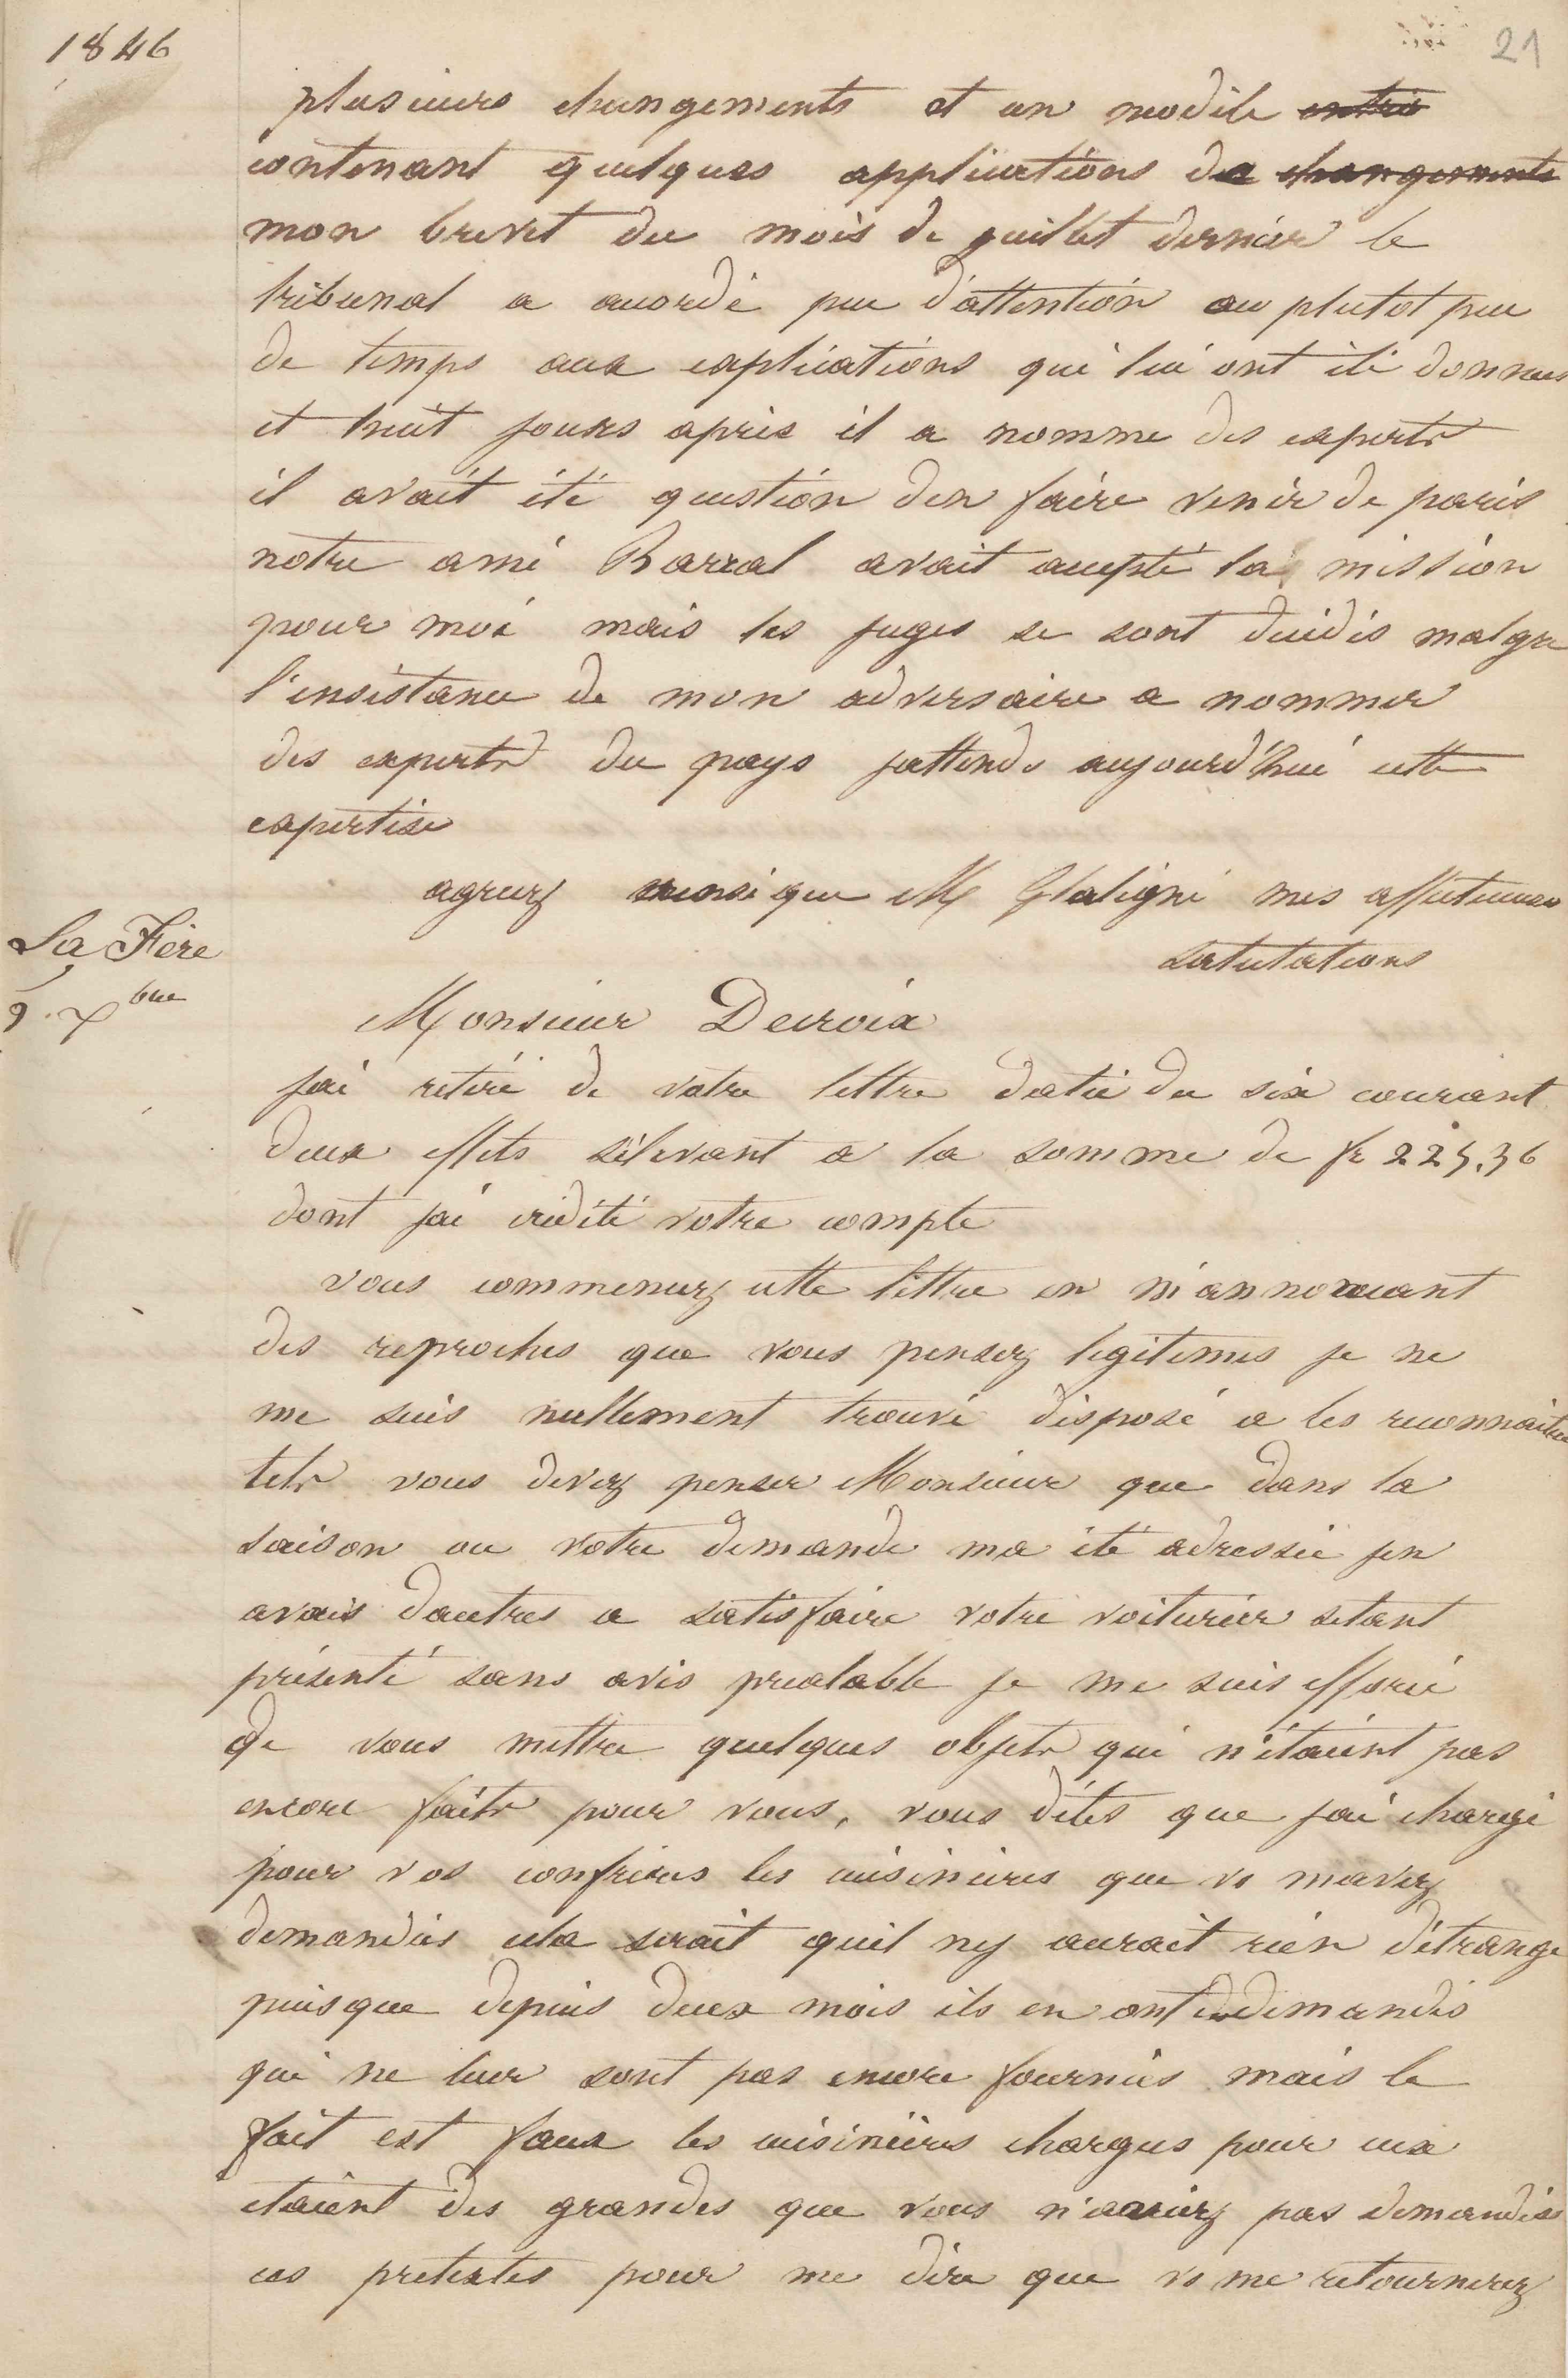 1846
21
plusieurs changements et un modèle entrio
contenant quelques applications de changements
mon brevet du mois de juillet dernier le
tribunal a accordé peu d'attention ou plutot peu
de temps aux explications qui lui ont été données
et huit jours après il a nomme des experts
il avait été question den faire venir de paris
notre ami Barral avait accepté la mission
pour moi mais les juges se sont décidés malgre
l'insistance de mon adversaire a nommer
des experts du pays jattends aujourd'hui cette
expertise
agreez ainsi que M Glatigni mes affectueuses
salutations
La Fère
9 Xbre
Monsieur Decroix
jai retiré de votre lettre datée du six courant
deux effets s'élevant a la somme de fr 225,36
dont jai crédité votre compte
vous commencez cette lettre en m'annonçant
des reproches que vous pensez legitimes je ne
me suis nullement trouvé disposé a les reconnaitre
tels vous devez penser Monsieur que dans la
saison ou votre demande ma été adressée jen
avais dautres a satisfaire votre voiturier setant
présenté sans avis prealable je me suis efforcé
de vous mettre quelques objets qui n'étaient pas
encore faits pour vous, vous dites que jai chargé
pour vos confrères les cuisinières que vs mavez
demandées cela serait quil ny aurait rien détrange
puisque depuis deux mois ils en ont demandés
qui ne leur sont pas encore fournies mais le
fait est faux les cuisinières chargees pour eux
etaient des grandes que vous n'aviez pas demandées
ces pretextes pour me dire que vs me retournerez